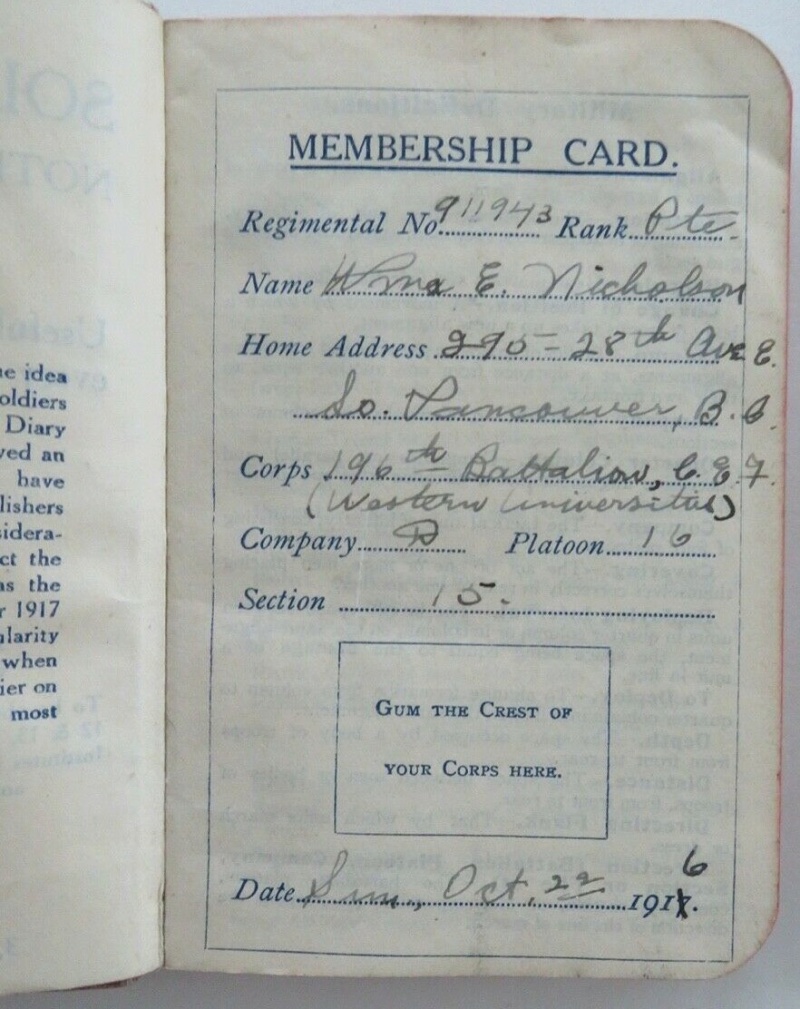 MEMBERSHIP CARD.
Regimental No. 911943 Rank Pte.
Name Wm. E. Nicholson
Home Address 295 - 28th Ave E.
So. Vancouver, B. C.
Corps 196th Battalion, C. E. F.
(Western Universities)
Company D Platoon 16
Section 15.
GUM THE CREST OF
YOUR CORPS HERE.
Date Sun., Oct. 22 1916.
e idea
oldiers
Diary
ved an
have
lishers
sidera-
ct the
as the
r 1917
ularity
when
ier on
most